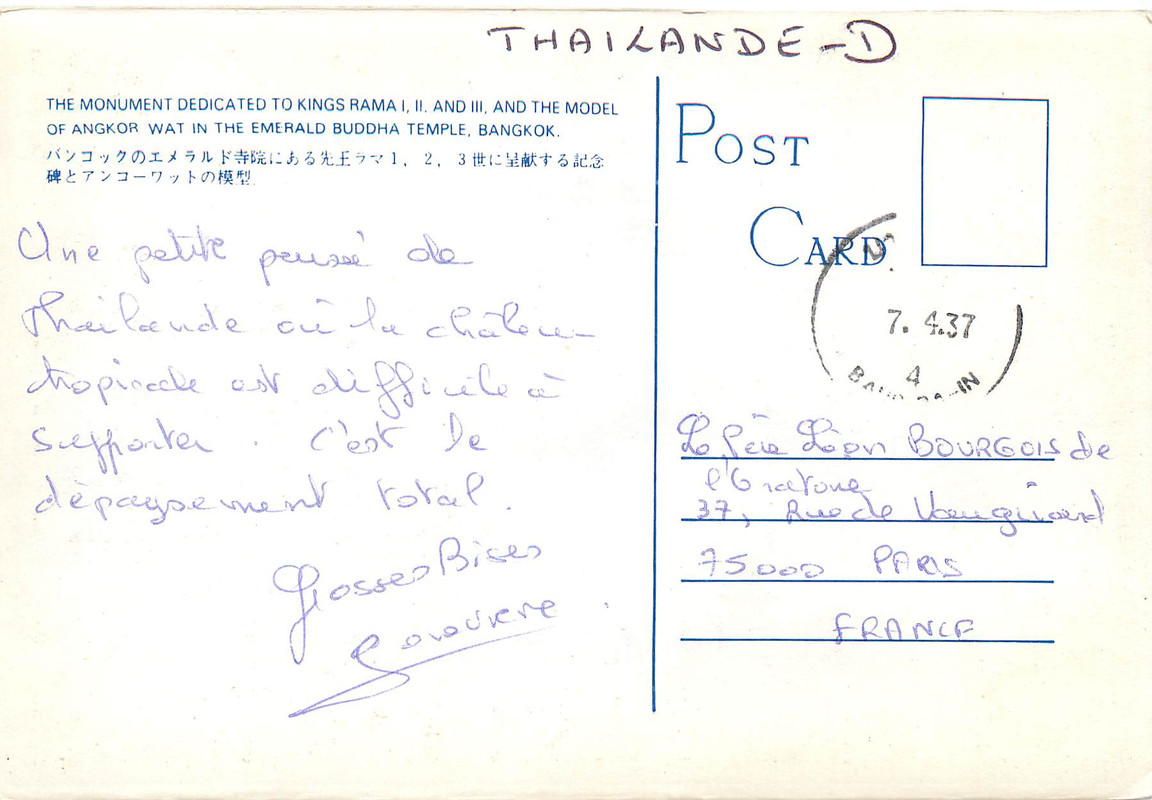 THAILANDE-D
THE MONUMENT DEDICATED TO KINGS RAMA I, II. AND III, AND THE MODEL
OF ANGKOR WAT IN THE EMERALD BUDDHA TEMPLE, BANGKOK.
バンコックのエメラルド寺院にある先王ラマ1, 2, 3世に呈献する記念
碑とアンコーワットの模型
Une petite pensée de
Thaïlande où la chaleur
tropicale est difficile à
supporter. C'est le
dépaysement total.
Grosses Bises
POST
CARD
7.4.37
4
Le Père Léon BOURGOIS de
l'Oratoire
37, Rue de Vaugirard
75000 PARIS
FRANCE